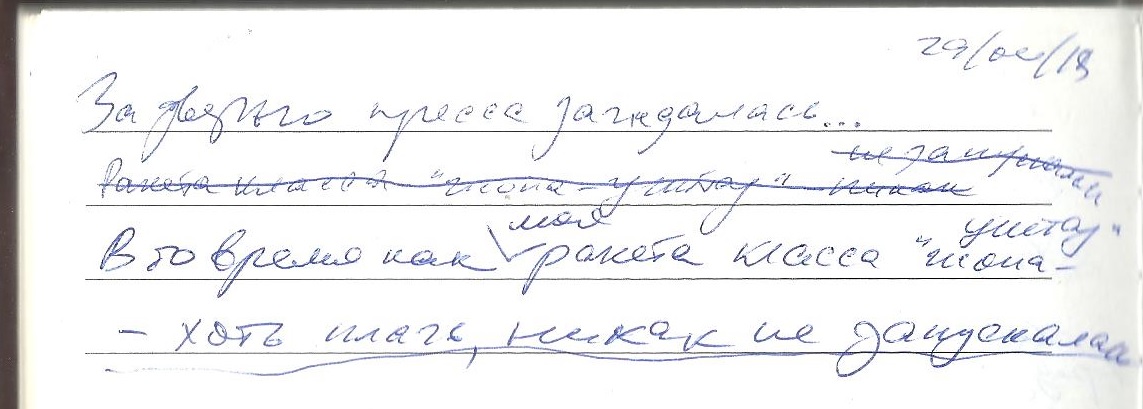 29/04/18
За дверью пресса заждалась...
Ракета класса "жопа-унитаз" никак не запускали
В то время как моя ракета класса "жопа-унитаз"
- хоть плачь, никак не запускалась